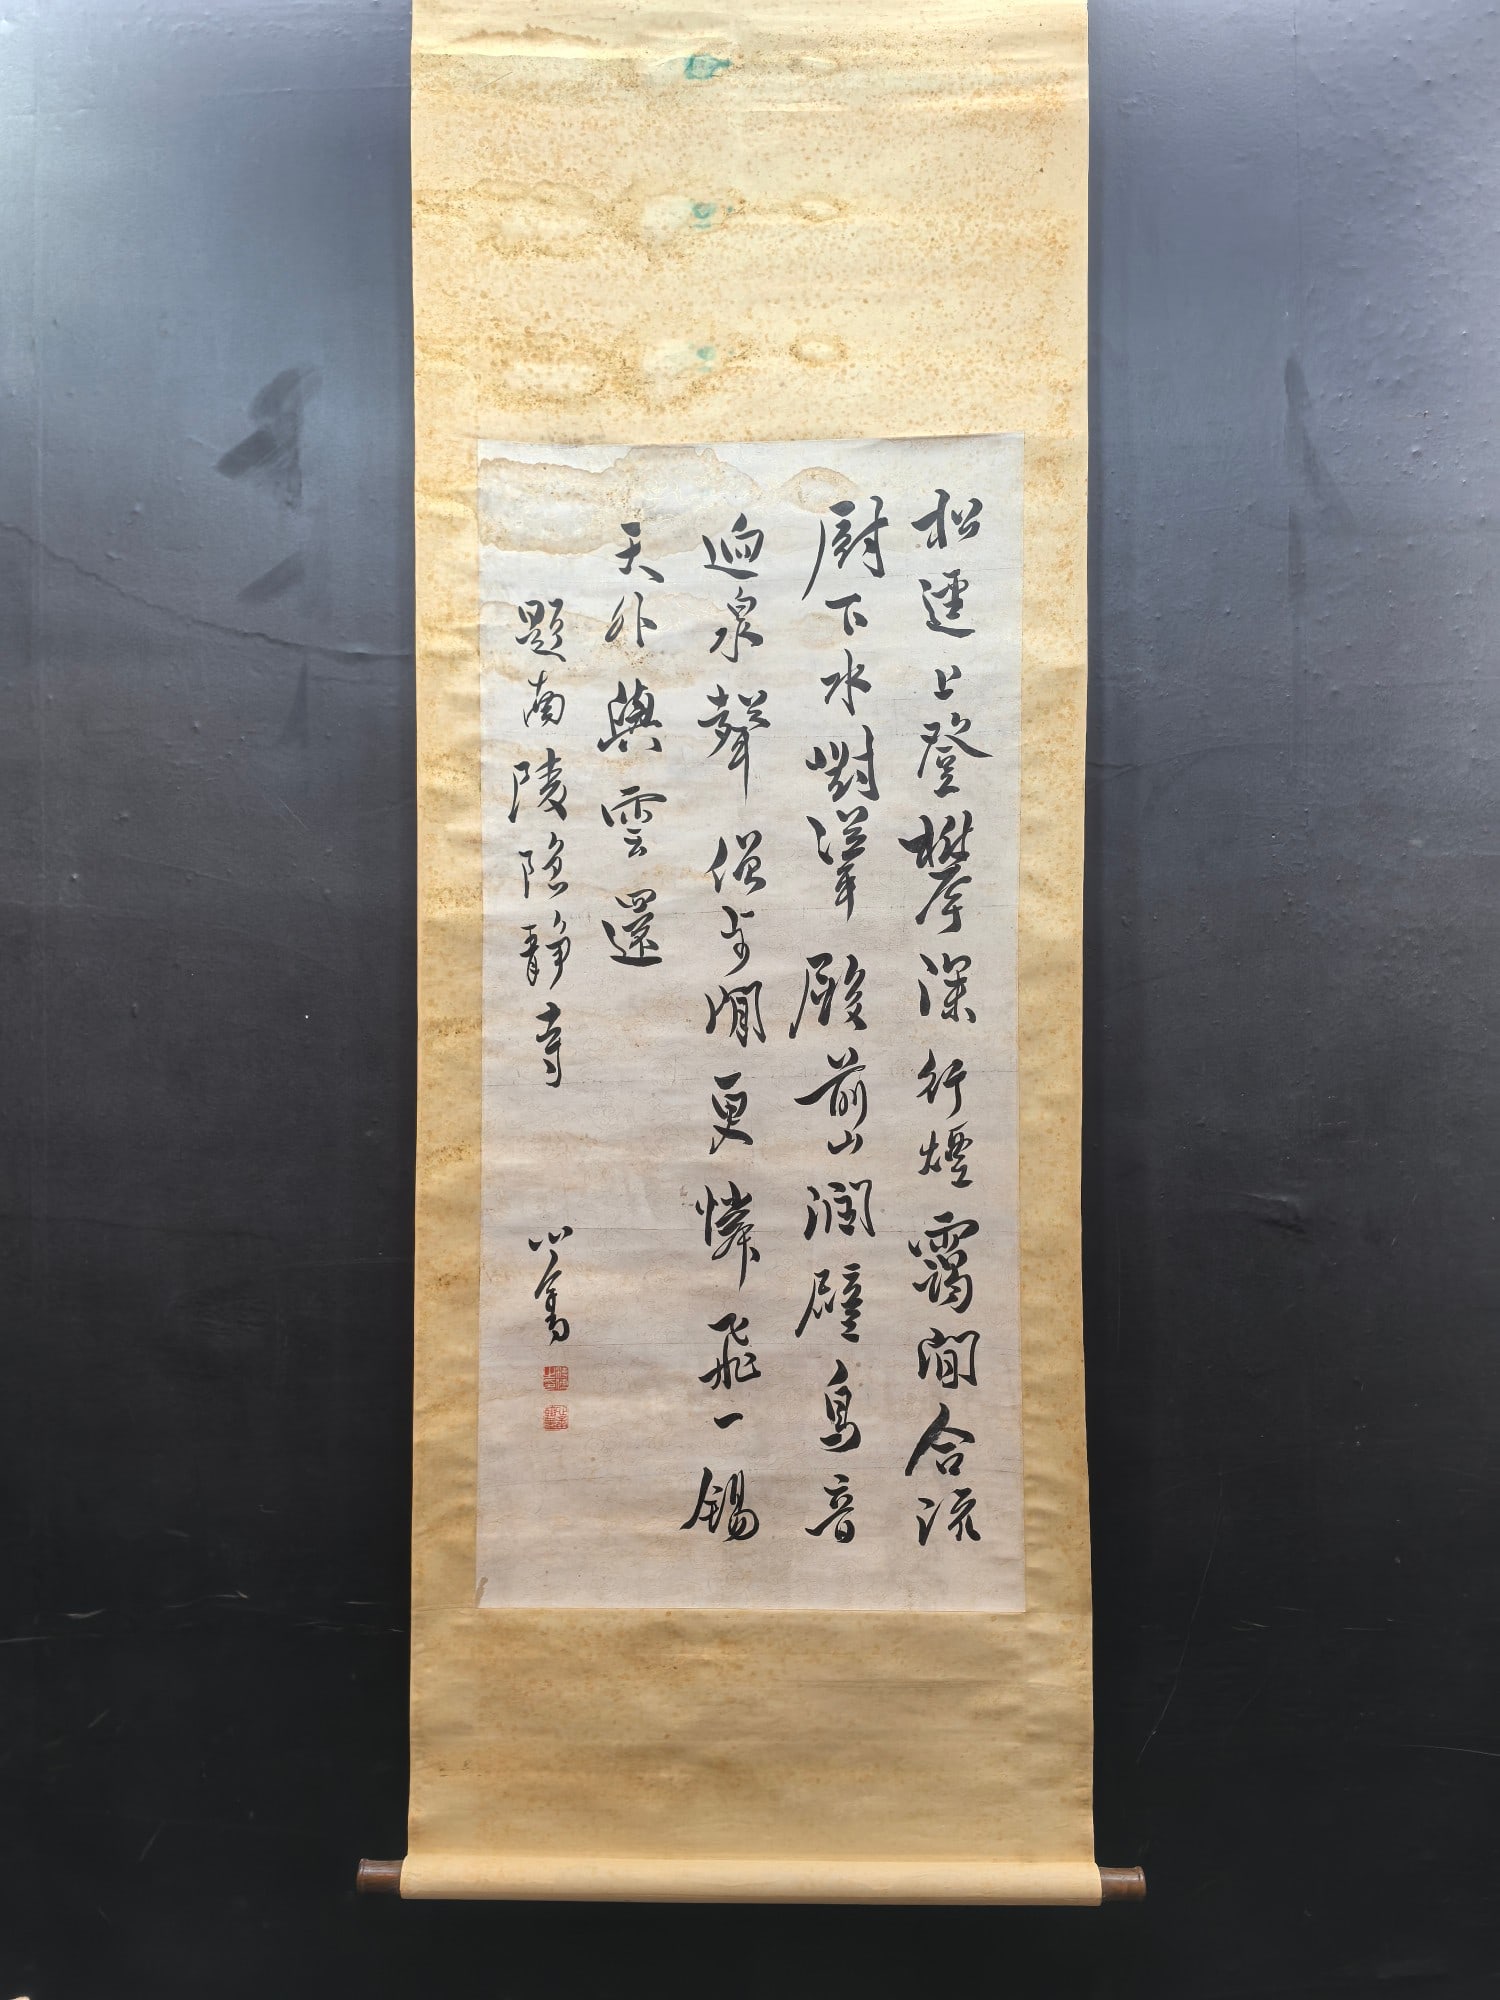 松逕上登攀深行煙靄間合流
厨下水對聳殿前山潤壁鳥音
逈泉聲僧步閒更憐飛一錫
天外與雲還
題南陵隱静寺
心畬